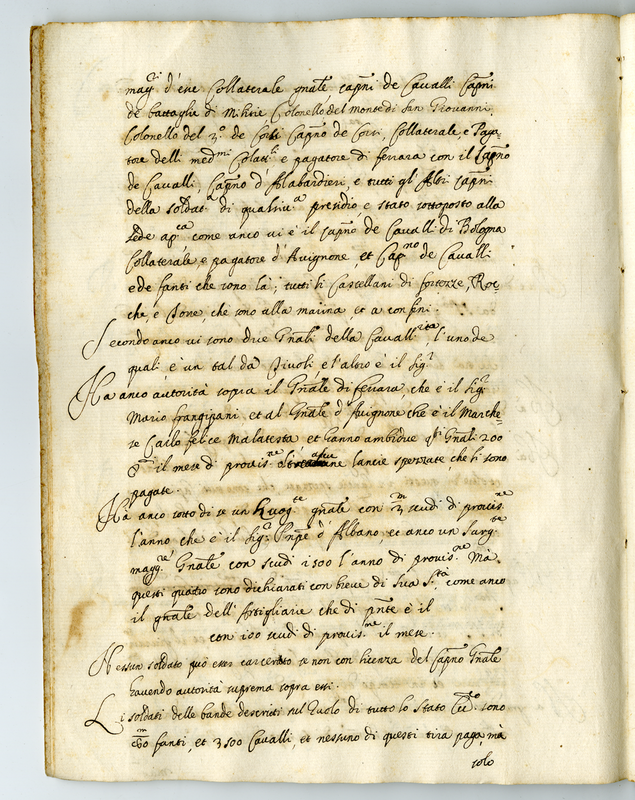 mag.ri d'esse Collaterale gnãle, capni de Cavalli Capni
de battaglie di Militie Colonello del monte di San Giovanni
Colonello del 3.º de Corsi Capño de Corsi, Collaterale, e Paga-
tore delli med.mi Colatt.li e pagatore di ferrara con il Capño
de Cavalli Capño d'Alabardieri, e tutti gl'Altri Capñi
della soldat.a di qualsiv.a presidio, e stato sottoposto alla
sede ap.ca come anco vi è il Capño de Cavalli di Bologna
Collaterale, e pagatore d'Avignone, et Cap.no de Cavalli
e de fanti che sono là; tutti li Castellani di fortezze, Roc-
che, e Torre, che sono alla marina, et a confini.
Secondo anco vi sono due Gñali della Cavall.ria, l'uno de
quali è un tal da Tivoli e l'altro è il Sig.r
Ha anco autorità sopra il Gñale di ferrara, che è il Sig.r
Mario frangipani, et al Gñale d'Avignone che è il Marche-
se Carlo felice Malatesta et hanno ambidue q.sti Gñali 200
il mese di provis.ne lancie spezzate, che li sono
pagate.
Ha anco sotto di se un Luog.te gñale con 3m scudi di provis.ne
l'anno che è il Sig.r Pnpe d'Albano, et anco un Sarg.te
magg.re Gñale con scudi 1500 l'anno di provis.ne Mà
questi quatro sono dichiarati con breve di Sua S.tà come anco
il gñale dell'Artigliarie che di pñte è il
con 100 scudi di provis.ne il mese.
Nessun soldato può esser carcerato se non con licenza del Capño Gñale
havendo autorità suprema sopra essi.
Li soldati delle bande descritti sul Ruolo di tutto lo stato Ecc.co sono
80m fanti, et 3500 Cavalli, et nessuno di questi tira paga, mà
solo